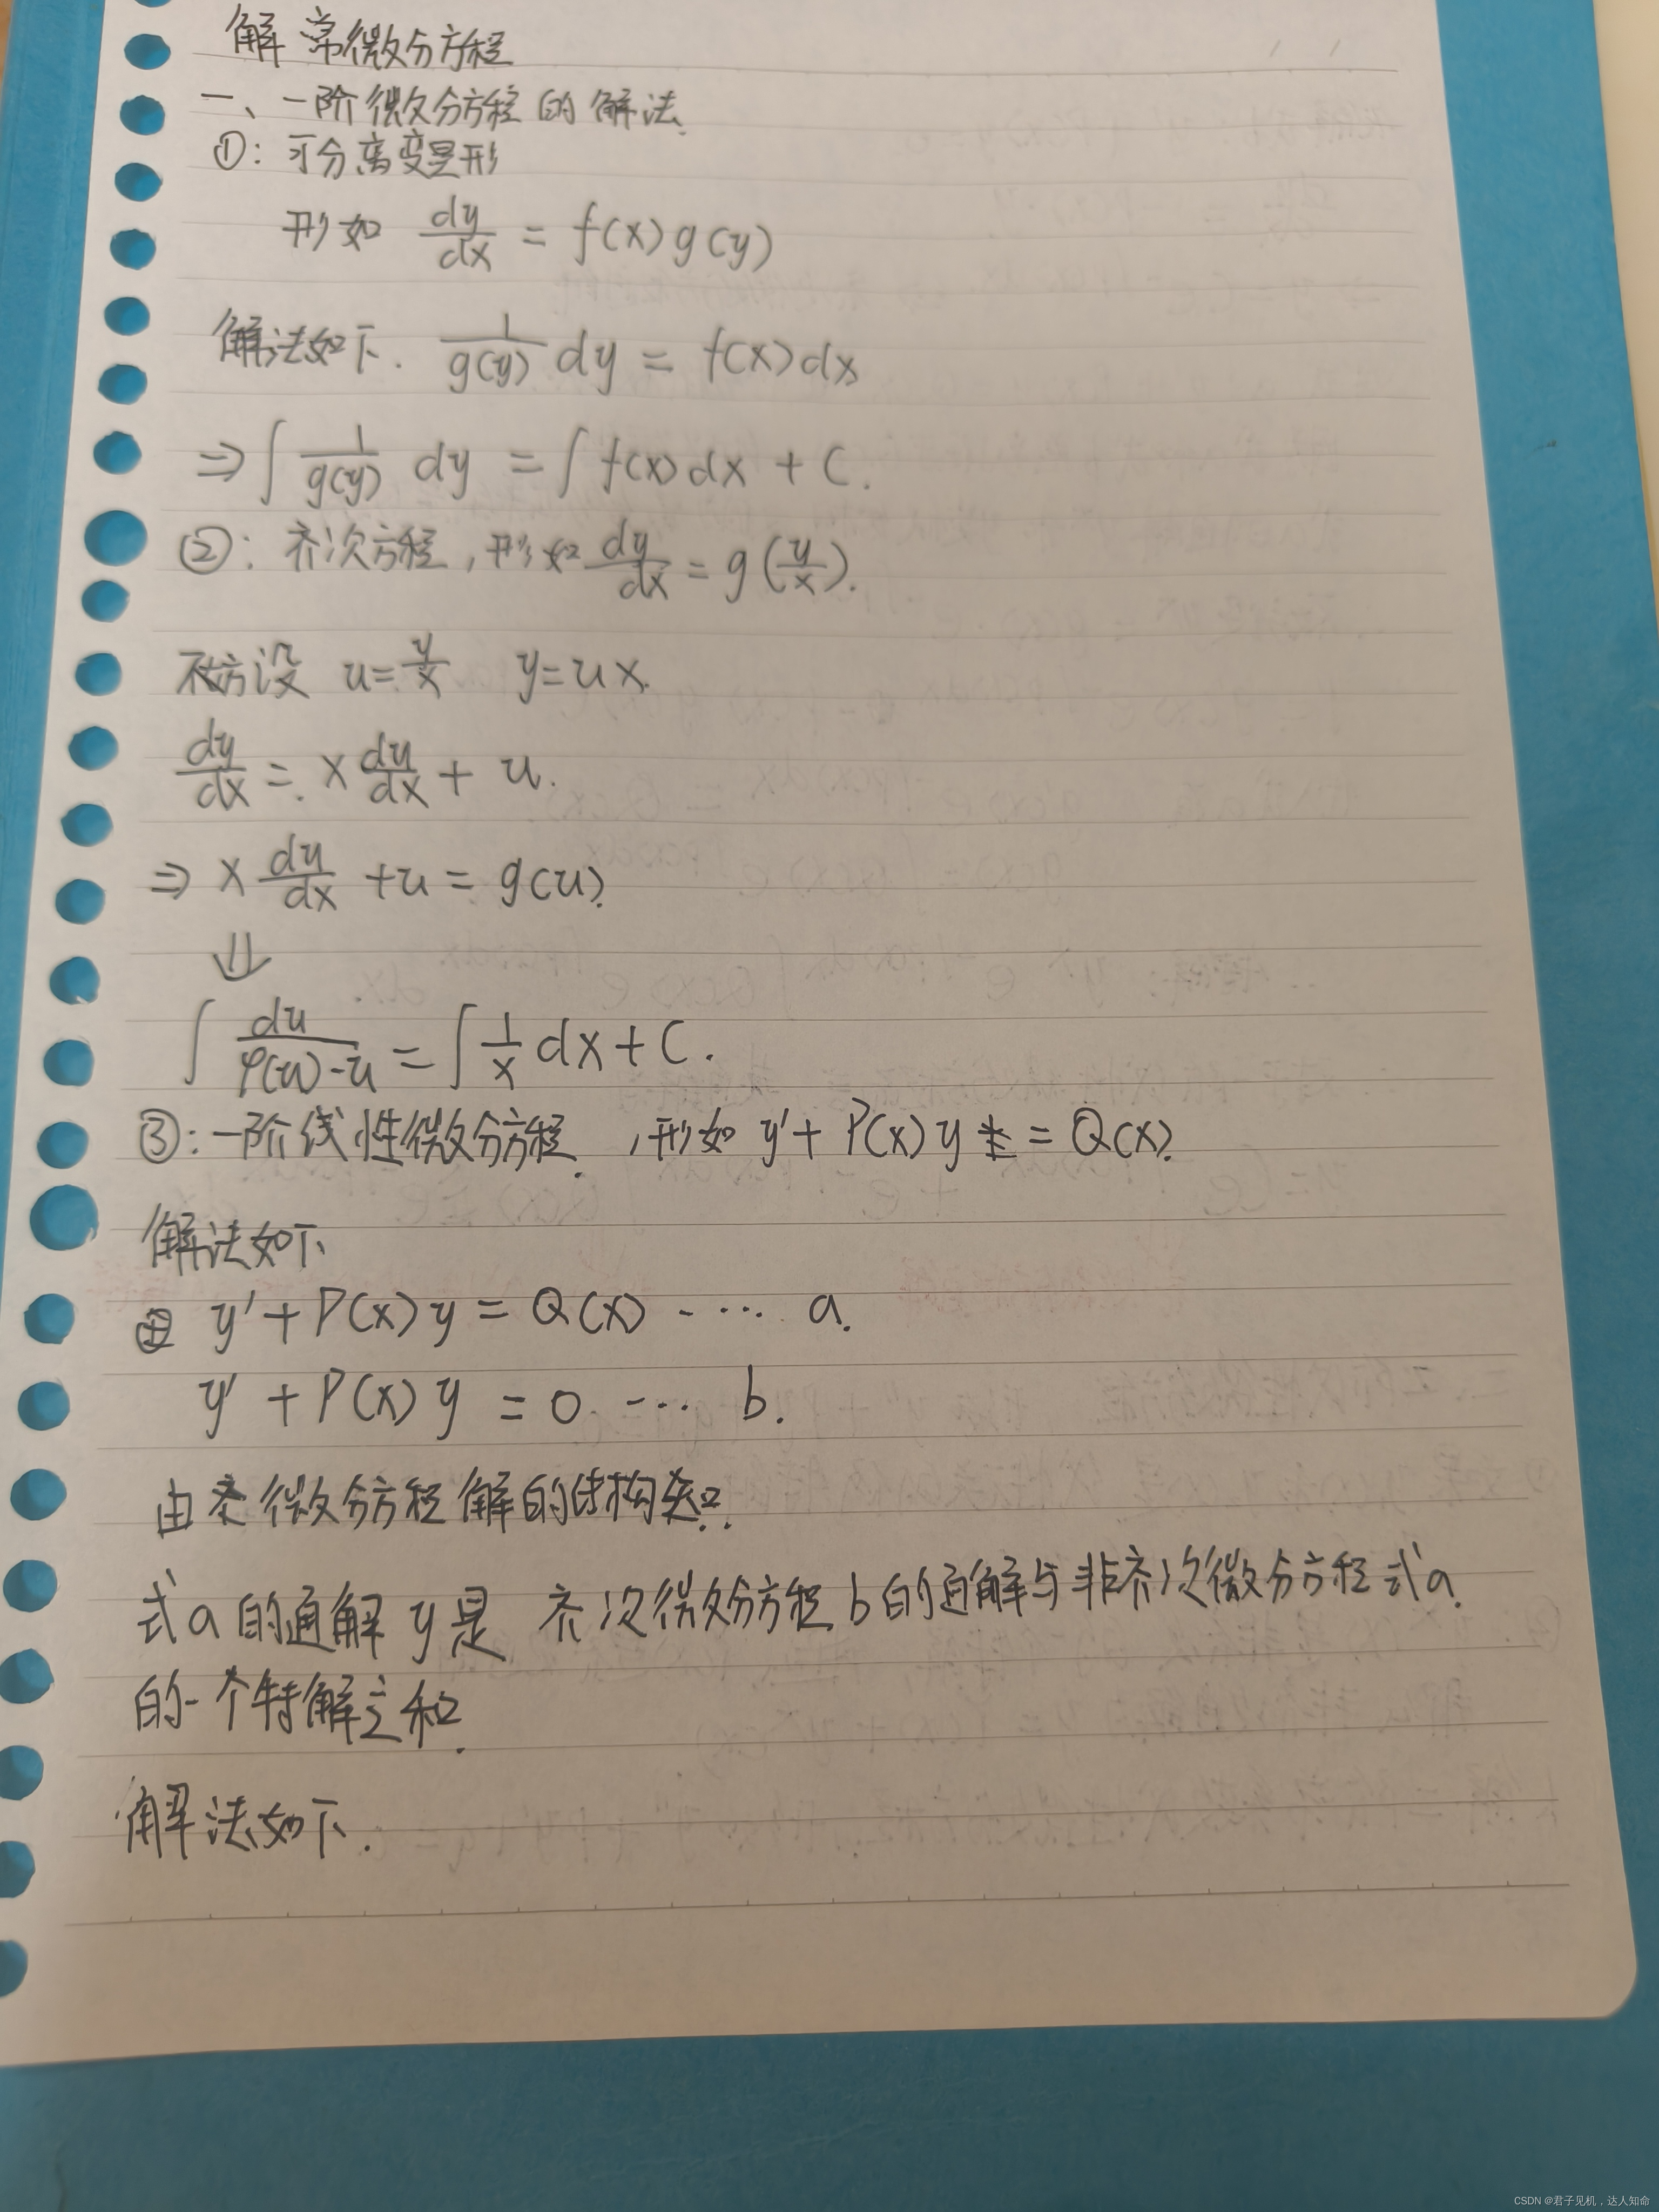 解 常微分方程
一、一阶微分方程的解法.
①: 可分离变量形
形如 dy/dx = f(x)g(y)
解法如下. 1/g(y) dy = f(x)dx
⇒∫ 1/g(y) dy = ∫ f(x)dx + C.
②: 齐次方程,形如 dy/dx = g(y/x).
不妨设 u=y/x y=ux.
dy/dx = x du/dx + u.
⇒ x du/dx +u = g(u).
⇓
∫ du/(φ(u)-u) = ∫ 1/x dx + C.
③: 一阶线性微分方程. ,形如 y'+ P(x)y = Q(x).
解法如下
y'+P(x)y = Q(x) - ··· a.
y' + P(x)y = 0. -··· b.
由 微分方程解的结构
式a的通解y是 齐次微分方程b的通解与非齐次微分方程式a.
的一个特解之和.
解法如下.
CSDN @君子见机,达人知命